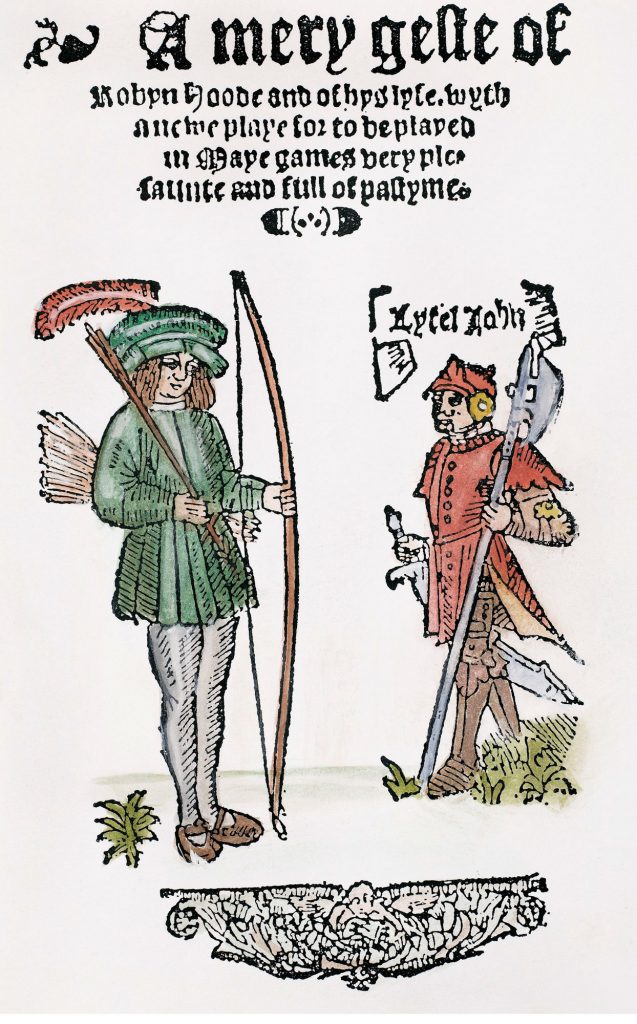 A mery geste of
Robyn Hoode and of hys lyfe. wyth
a newe playe for to be played
in Maye games very ple-
saunte and full of pastyme.
Lytel John